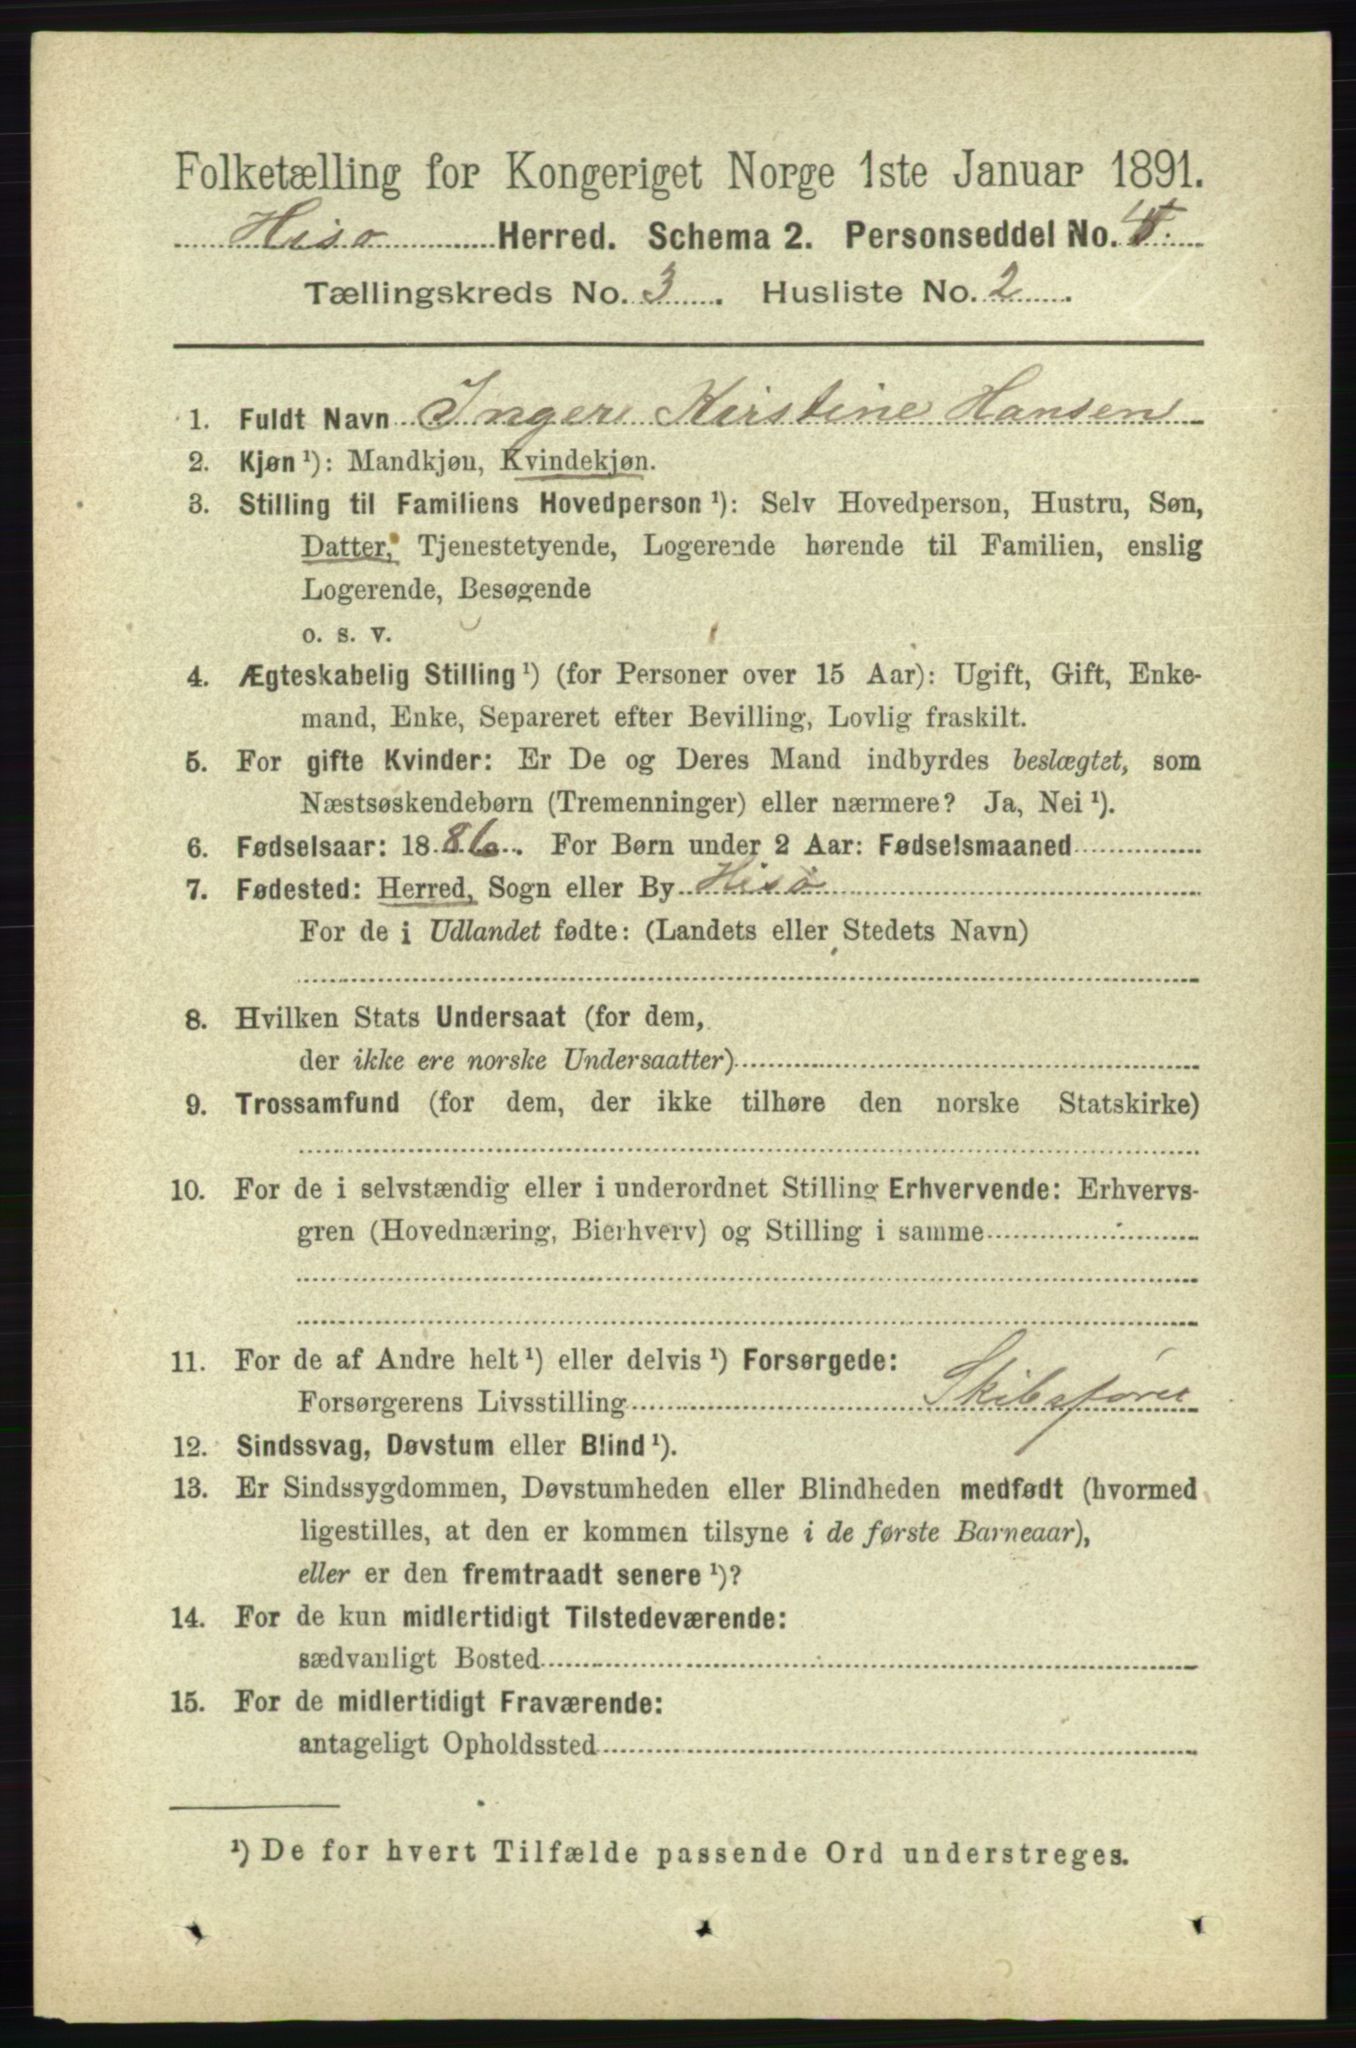 Folketælling for Kongeriget Norge 1ste Januar 1891.
Hisø Herred. Schema 2. Personseddel No.
Tællingskreds No. 3. Husliste No. 2.
1. Fuldt Navn Inger Kirstine Hansen
2. Kjøn ¹): Mandkjøn, Kvindekjøn.
3. Stilling til Familiens Hovedperson ¹): Selv Hovedperson, Hustru, Søn,
Datter, Tjenestetyende, Logerende hørende til Familien, enslig
Logerende, Besøgende
o. s. v.
4. Ægteskabelig Stilling ¹) (for Personer over 15 Aar): Ugift, Gift, Enke-
mand, Enke, Separeret efter Bevilling, Lovlig fraskilt.
5. For gifte Kvinder: Er De og Deres Mand indbyrdes beslægtet, som
Næstsøskendebørn (Tremenninger) eller nærmere? Ja, Nei ¹).
6. Fødselsaar: 1886. For Børn under 2 Aar: Fødselsmaaned
7. Fødested: Herred, Sogn eller By Hisø
For de i Udlandet fødte: (Landets eller Stedets Navn)
8. Hvilken Stats Undersaat (for dem,
der ikke ere norske Undersaatter)
9. Trossamfund (for dem, der ikke tilhøre den norske Statskirke)
10. For de i selvstændig eller i underordnet Stilling Erhvervende: Erhvervs-
gren (Hovednæring, Bierhverv) og Stilling i samme
11. For de af Andre helt ¹) eller delvis ¹) Forsørgede:
Forsørgerens Livsstilling Skibsfører
12. Sindssvag, Døvstum eller Blind ¹).
13. Er Sindssygdommen, Døvstumheden eller Blindheden medfødt (hvormed
ligestilles, at den er kommen tilsyne i de første Barneaar),
eller er den fremtraadt senere ¹)?
14. For de kun midlertidigt Tilstedeværende:
sædvanligt Bosted
15. For de midlertidigt Fraværende:
antageligt Opholdssted
¹) De for hvert Tilfælde passende Ord understreges.